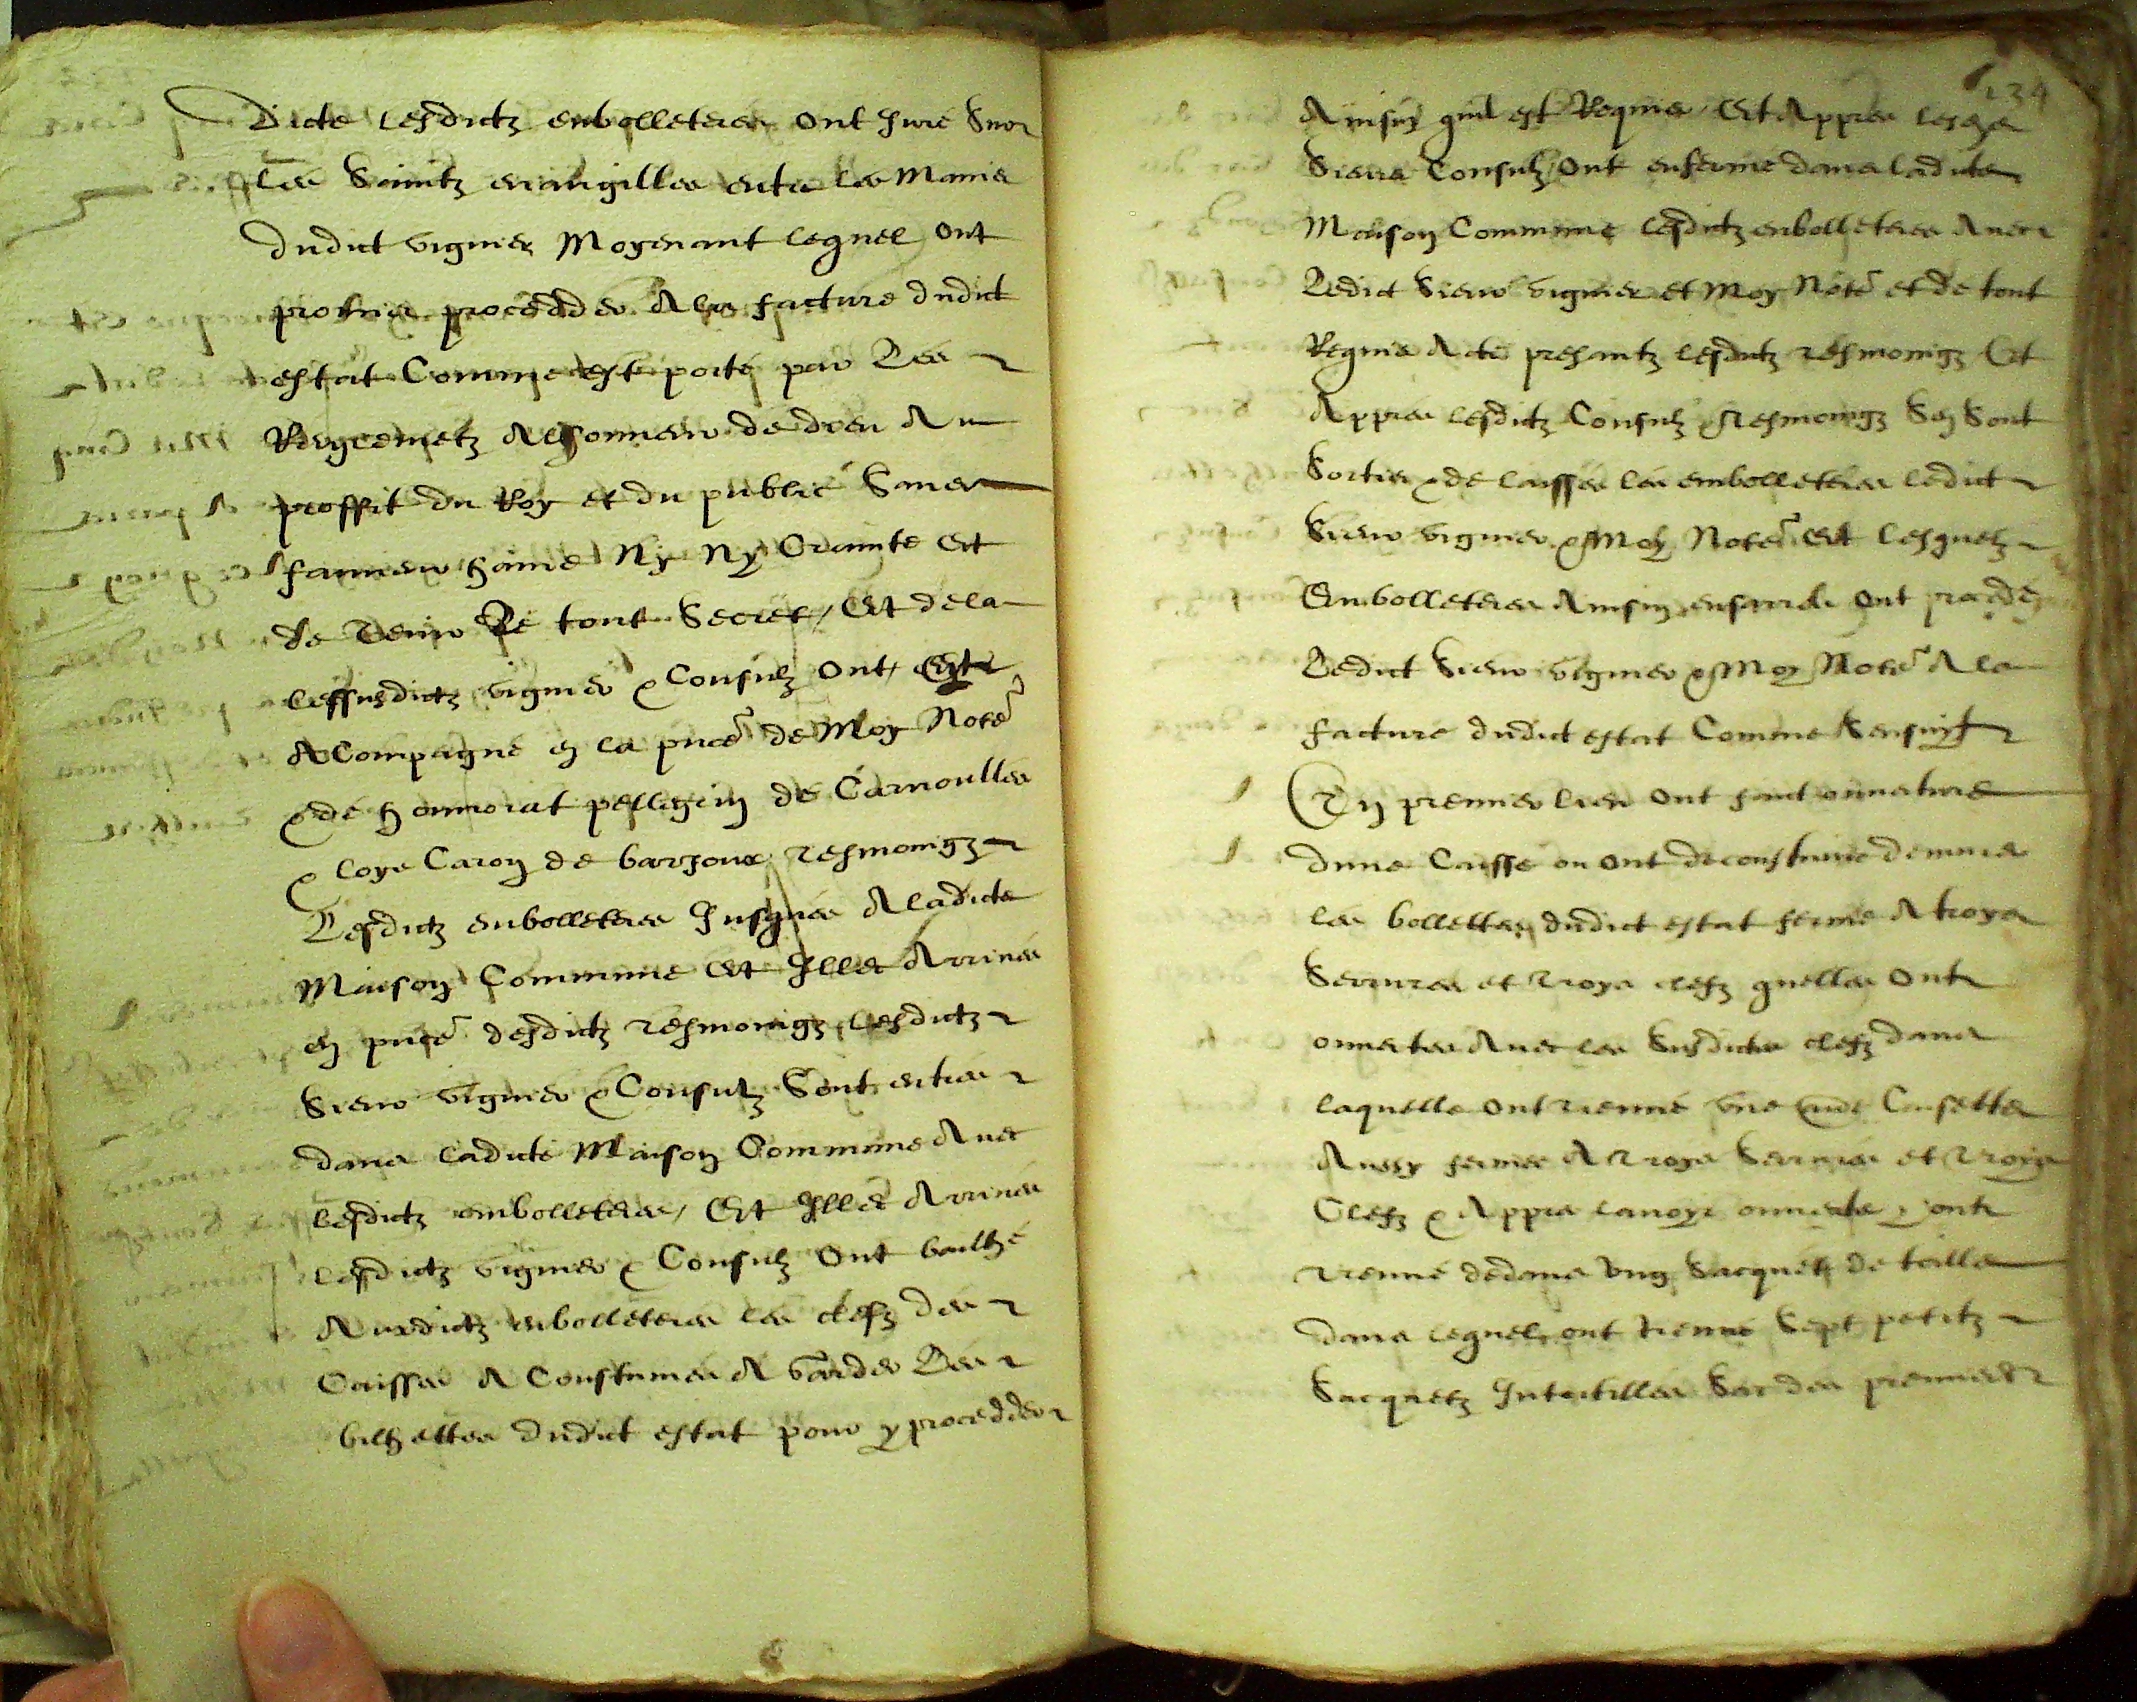 Dicte lesdictz enbolleteurs ont juré sur
les sainctz evangilles entre les mains
dudict viguier moyenant lequel ont
promis procedder a la facture dudict
estat comme est porté par les
Reglemetz a lhonneur de dieu au
proffit du Roy et du public sans
faveur haine ny ny crainte et
de tenir le tout secret / et dela
lessusdictz viguier & consulz ont, 
acompagné en la pnce de moy note
& de honnorat pellegrin de Carnoulles
& loys Caron de barjoux tesmoingz
Lesdictz enbolleteurs jusques a ladicte
Maison commune et illec arrives
en pnce desdictz tesmoingz lesdictz
sieur viguier & consulz sont entres
dans ladicte maison commune avec
lesdictz embolleteurs, Et illec arrives
lesdictz viguier & consulz ont bailhé
auxdictz enbolleteurs les clefz des
Caisses acoustumes a garder les
bilhettes dudict estat pour y procedder
134
Ainsin quil est Requis, Et appres lesdz
sieurs consulz ont enfermé dans ladicte
Maison commune lesdictz enbolleteurs avec
Ledict sieur viguier et moy note et de tout
Requis acte presantz lesdictz tesmoingz Et
Appres lesdictz consulz & tesmoingz sen sont
sortis & de laisses les embolleteurs ledict
sieur viguier & moy note et lesquelz
Embolleteurs ainsin ensarrés ont procedé
Ledict sieur viguier & moy note a la
facture dudict estat comme sensuyt
En premier lieu ont faict ouverture
dune caisse ou ont de coustume demeurer
les bollettes dudict estat fermé a troys
serrures et troys clefz quelles ont
ouvertes avec les susdictes clefz dans
laquelle ont tienné une Caisette
Aussy fermée a troys serrures et troys
Clefz & appres lavoyr ouverte y ont
tienné dedans ung sacquet de toille
dans lequel ont tienné sept petitz
sacquetz intitulles sac des premiers